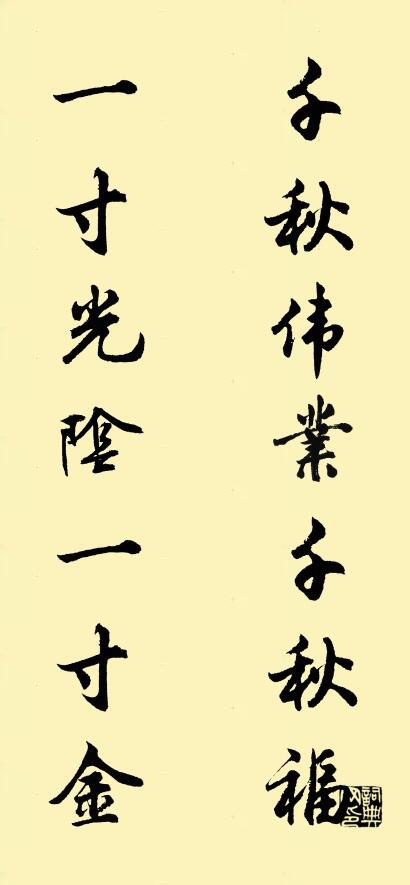 千秋伟業千秋福
一寸光陰一寸金